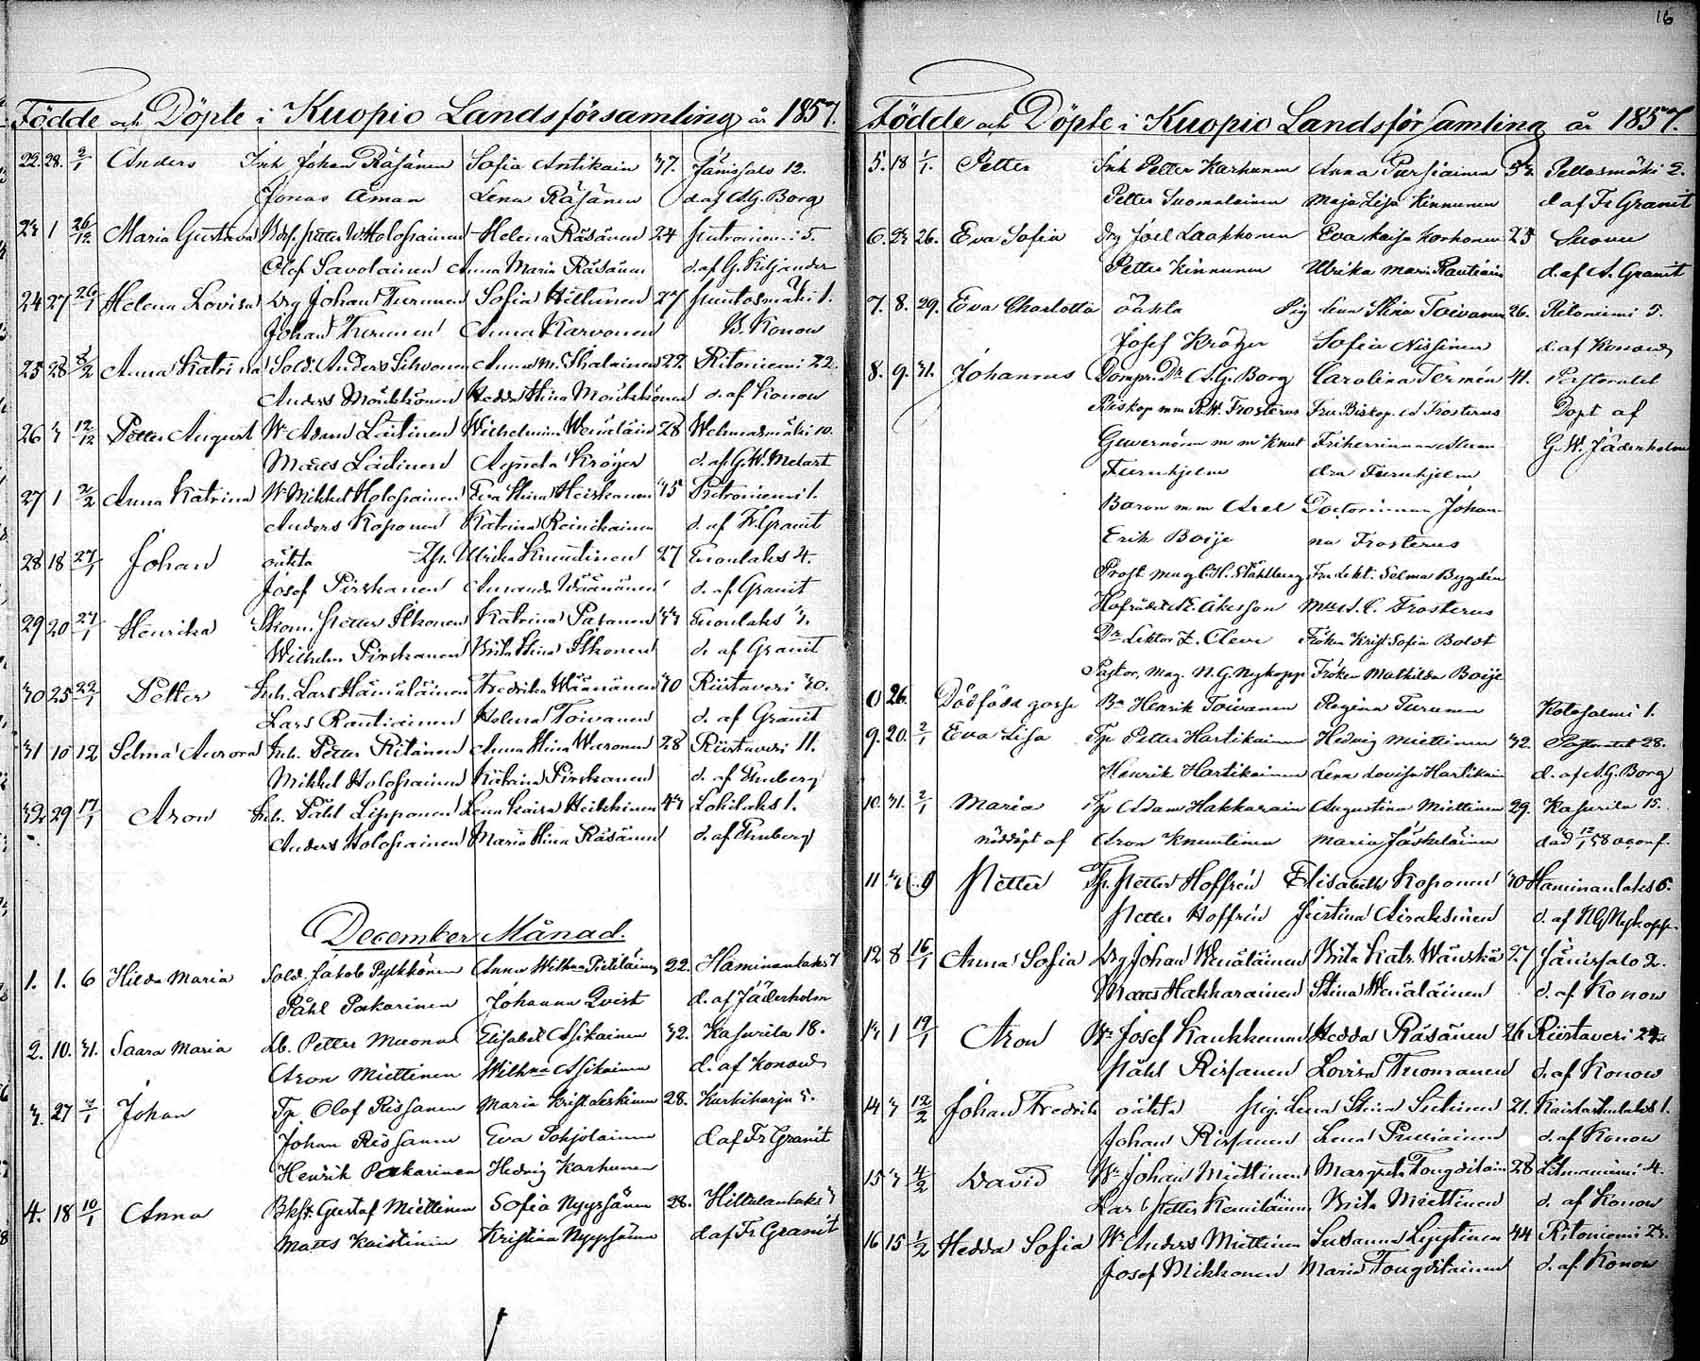 Födde och Döpte i Kuopio Landsförsamling år 1857.
22. 28. 2/1 Anders Inh Johan Räsänen Sofia Antikain 37. Jänissalo 12.
Jonas Åman Lena Räsänen d. af A.G. Borg
23 1 26/12 Maria Gustava Petter W. Holopainen Helena Räsänen 24 5.
Olof Savolainen Anna Maria Räsänen d. af G. Kiljander
24 27 26/1 Helena Lovisa Drg Johan Turunen Sofia Hiltunen 27 Puutosmäki 1.
Johan Turunen Anna Karvonen B. Konow
25 28 Anna Katrina Sold. Anders Sihvonen Anna M. 22. Ritoniemi 22.
Anders Mönkkönen Hedda Stina Mönkkönen d. af Konow
26 3 12/12 Petter August Wr Adam Laitinen Wilhelmina Wenäläin 28 Wehmasmäki 10.
Matts Laitinen Agneta Kröger d. af G. W. Melart
27 1 2/2 Anna Katrina Wr Mikkel Holopainen Eva Stina Heiskanen 35 1.
Anders Koponen Katrina Reinikainen d. af Fr. Granit
28 18 27/1 Johan oäkta Ulrika Knuutinen 27 Tuonlaks 4.
Josef Pirskanen Amanda Wäänänen d. af Granit
29 20 27/1 Henrika Petter Ikonen Katrina Pasanen 33 Tuonlaks 3.
Wilhelm Pirskanen Brita Stina Ikonen d. af Granit
30 25 22/1 Petter Inh. Lars Hämäläinen Fredrika Wäänänen 30 Riistaveri 30.
Lars Rautiainen Helena Toivanen d. af Granit
31 10 12 Selma Aurora Inh. Petter Ritänen Anna Stina 28 Riistaveri 11.
Mikkel Holopainen Katrina Pirskanen d. af Eneberg
32 29 17/1 Aron Inh. Påhl Lipponen Lena Kaisa Heiskinen 43 Lohilaks 1.
Anders Holopainen Maria Stina Räsänen d. af Eneberg
December Månad.
1. 1. 6 Hilda Maria Sold. Jakob Pylkkönen Anna Wilhna 22. Haminanlaks 7
Påhl Pakarinen Johanna Qvist d. af Jäderholm
2. 10. 31. Saara Maria Lb. Petter Miettinen Elisabet Assikainen 32. Kasurila 18.
Aron Miettinen Wilhna Assikainen d. af Konow
3. 27 Johan Tp Olof Rissanen Maria Krist. Leskinen 28. Kurkiharju 5.
Johan Rissanen Eva Pohjolainen d. af Fr Granit
Henrik Pakarinen Hedvig Karhunen
4. 18 10/1 Anna Gustaf Miettinen Sofia Nyyssönen 28. Hiltulanlaks 3
Matts Kaistinen Kristina Nyyssönen d. af Fr Granit
16
Födde och Döpte i Kuopio Landsförsamling år 1857.
5. 18 1/1. Petter Inh Petter Karhunen Anna Parsiainen 33. Pellosmäki 2.
Petter Suomalainen Maja Lisa Kinnunen d. af Fr Granit
6. 23 26. Eva Sofia Drg Joel Laakkonen Eva Kaisa Korhonen 25
Petter Kinnunen Ulrika Maria Rautiain d. af A. Granit
7. 8. 29. Eva Charlotta oäkta Pig Lena Stina Toivanen 26. Ritoniemi 5.
Josef Kröger Sofia Nissinen d. af Konow
8. 9. 31. Johannes Dompr. Dr A. G. Borg Carolina Fermén 41. Pastoratet
Biskop mm R. W. Frosterus Fru Biskop. Frosterus Döpt af
Guvernören m m Knut Friherrinnan G. W. Jäderholm
Furuhjelm Furuhjelm
Baron m m Axel Doctorinnan Johan-
Erik Boije na Frosterus
Prost. mag. C. H. Ståhlberg Fru Lekt. Selma Bygdén
Hofrådet Z. Åkesson Mll A. C. Frosterus
Dr Lektor Z. Cleve Fröken Krist. Sofia Boldt
Pastor, mag. N. G. Nykopp Fröken Mathilda Boije
0 26. Dödfödd gosse Bn Henrik Toivanen Regina Turunen Kotasalmi 1.
9. 20. 2/1 Eva Lisa Tp Petter Hartikainen Hedvig Miettinen 32. Pastoratet 28.
Henrik Hartikainen Lena Lovisa Hartikain d. af A. G. Borg
10. 31. 2/1 Maria Tp Adam Hakkarain Augustina Miettinen 29. Kasurila 15.
nöddöpt af Aron Knuutinen Maria Jääskeläinen död 12/1 58
11 3 9 Petter Tp. Petter Hoffrén Elisabeth Koponen 30 Haminanlaks 6.
Petter Hoffrén Justina Airaksinen d. af N G Nykopp
12 8 16/1 Anna Sofia Drg Johan Wenäläinen Brita Katr. Wänskä 27 Jänissalo 2.
Matts Hakkarainen Stina Wenäläinen d. af Konow
13 1 19/1 Aron Wr Josef Kaukkonen Hedda Räsänen 26 Riistaveri 24
Påhl Rissanen Lovisa Tuomainen d. af Konow
14 3 12/2 Johan Fredrik oäkta Pig. Lena Stina Sutinen 21. 1.
Johan Rissanen Lena d. af Konow
15 3 4/2 David Wr Johan Miettinen Margreta 28 4.
Lars Petter Brita Miettinen d. af Konow
16 15 1/2 Hedda Sofia Wr Anders Miettinen Susanna Lyytinen 44 Ritoniemi 23.
Josef Mikkonen Maria d. af Konow